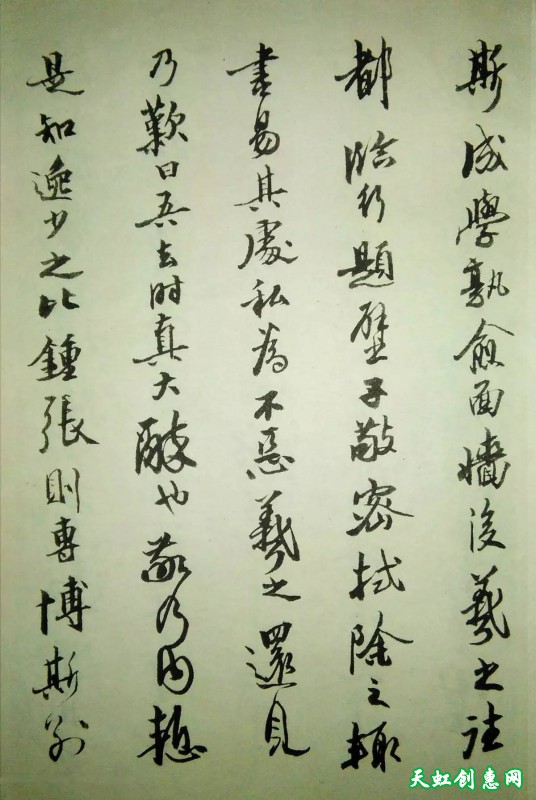 斯成學孰愈面墻後羲之往
都臨行題壁子敬密拭除之輙
書易其處私為不惡羲之還見
乃歎曰吾去時真大醉也敬乃内慙
是知逸少之比鍾張則專博斯別
天虹创惠网